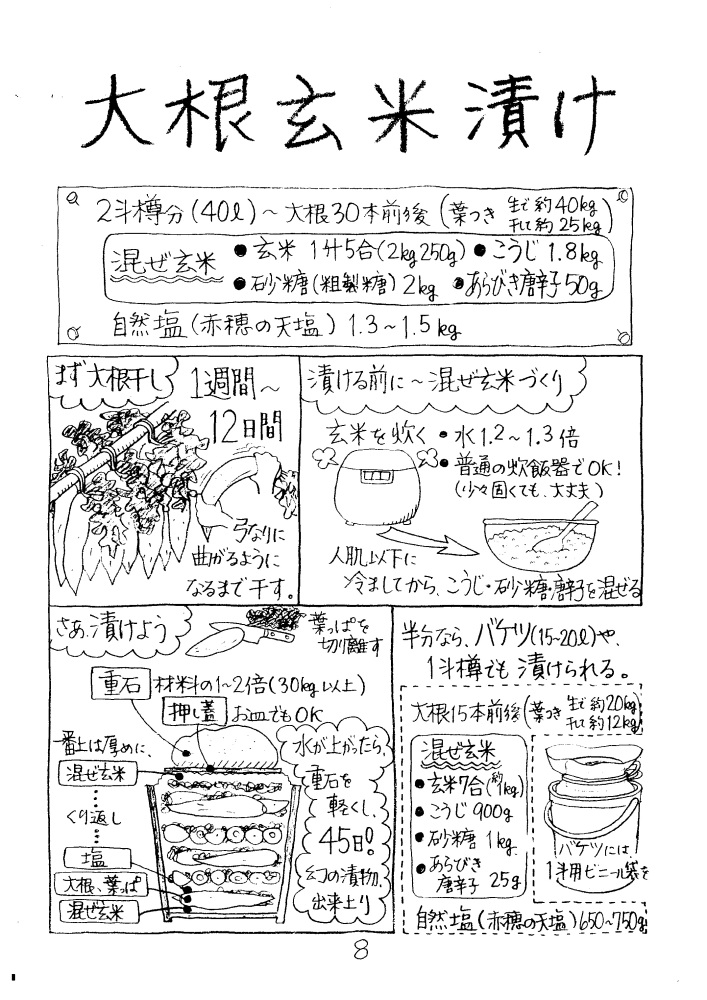 大根玄米漬け
2斗樽分(40ℓ)~大根30本前後(葉つき 生で約40kg 干して約25kg)
混ぜ玄米
●玄米 1升5合(2kg250g) ●こうじ 1.8kg
●砂糖(粗製糖)2kg ●あらびき唐辛子50g
自然塩(赤穂の天塩)1.3~1.5kg
まず大根干し
1週間~
12日間
弓なりに
曲がるように
なるまで干す。
漬ける前に~混ぜ玄米づくり
玄米を炊く ●水1.2~1.3倍
●普通の炊飯器でOK!
(少々固くても、大丈夫)
人肌以下に
冷ましてから、こうじ・砂糖・唐辛子を混ぜる
さあ、漬けよう
葉っぱを
切り離す
重石 材料の1~2倍(30kg以上)
押し蓋 お皿でもOK
一番上は厚めに、
混ぜ玄米
くり返し
塩
大根、葉っぱ
混ぜ玄米
水が上がったら、
重石を
軽くし、
45日!
幻の漬物、
出来上り
半分なら、バケツ(15~20ℓ)や、
1斗樽でも漬けられる。
大根15本前後(葉つき 生で約20kg 干して約12kg)
混ぜ玄米
●玄米7合(約1kg)
●こうじ 900g
●砂糖 1kg
●あらびき
唐辛子 25g
バケツには、
1斗用ビニール袋を
自然塩(赤穂の天塩)650~750g
8